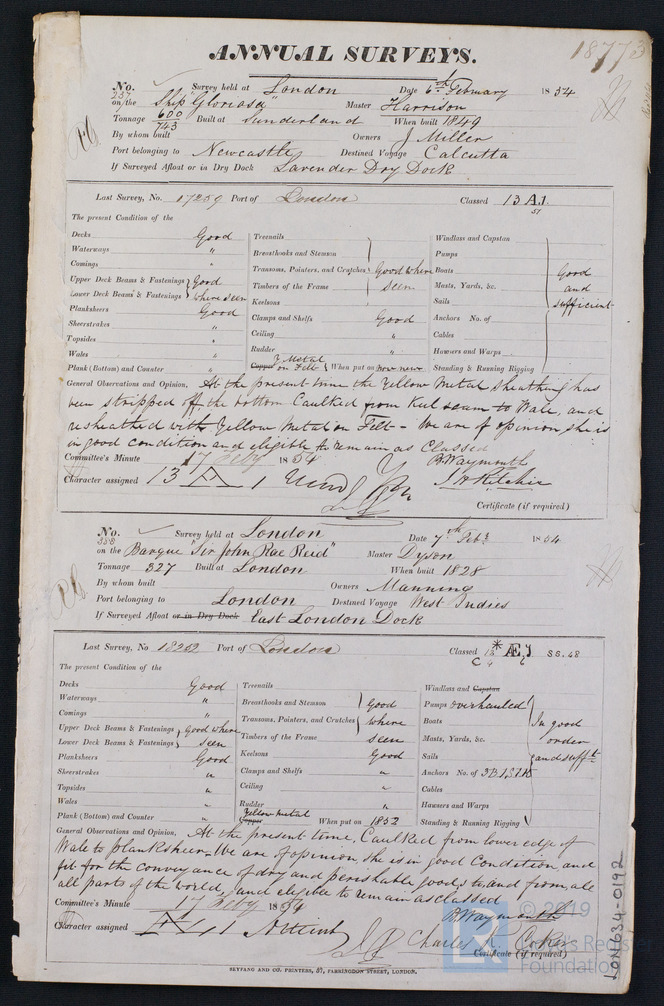 18773
ANNUAL SURVEYS.
No. 357 Survey held at London Date 6th February 1854
on the Ship "Gloriosa" Master Harrison
Tonnage 600/743 Built at Sunderland When built 1849
By whom built Owners J Miller
Port belonging to Newcastle Destined Voyage Calcutta
If Surveyed Afloat or in Dry Dock Lavender Dry Dock
Last Survey, No. 17259 Port of London Classed 13 A.1.
51
The present Condition of the
Decks Good
Waterways "
Comings "
Upper Deck Beams & Fastenings } Good
Lower Deck Beams & Fastenings } where seen
Planksheers Good
Sheerstrakes "
Topsides "
Wales "
Plank (Bottom) and Counter "
Treenails
Breasthooks and Stemson
Transoms, Pointers, and Crutches } Good where
Timbers of the Frame seen
Keelsons
Clamps and Shelfs Good
Ceiling "
Rudder "
Copper Y Metal on Felt { When put on now new
Windlass and Capstan
Pumps
Boats Good
Masts, Yards, &c. and
Sails sufficient
Anchors No. of
Cables
Hawsers and Warps
Standing & Running Rigging
General Observations and Opinion, At the present time the Yellow Metal sheathing has
been stripped off, the bottom Caulked from Keel seam to Wale, and
resheathed with Yellow Metal on Felt - We are of opinion she is
in good condition and eligible to remain as Classed
Committee's Minute 17 Feby 1854 B Waymouth
Character assigned 13 A 1 J H Ritchie
Certificate (if required)
No. 358 Survey held at London Date 7th Feby 1854
on the Barque "Sir John Rae Reid" Master Dyson
Tonnage 327 Built at London When built 1828
By whom built Owners Manning
Port belonging to London Destined Voyage West Indies
If Surveyed Afloat or in Dry Dock East London Dock
Last Survey, No 18202 Port of London Classed 13 * Æ 1 S S. 48
C 4 6
The present Condition of the
Decks Good
Waterways "
Comings "
Upper Deck Beams & Fastenings } Good where
Lower Deck Beams & Fastenings } seen
Planksheers Good
Sheerstrakes "
Topsides "
Wales "
Plank (Bottom) and Counter "
Treenails
Breasthooks and Stemson Good
Transoms, Pointers, and Crutches where
Timbers of the Frame seen
Keelsons Good
Clamps and Shelfs "
Ceiling "
Rudder "
Copper Yellow Metal When put on 1852
Windlass and Capstan
Pumps overhauled
Boats In good
Masts, Yards, &c. order
Sails and sufft
Anchors No. of 3B.1S.1K
Cables
Hawsers and Warps
Standing & Running Rigging
General Observations and Opinion, At the present time, Caulked from lower edge of
Wale to planksheer - We are of opinion she is in good Condition and
fit for the conveyance of dry and perishable goods to and from all
all parts of the world, and eligible to remain as classed
Committee's Minute 17 Feby 1854 B Waymouth
Character assigned Æ 1 Charles R. Coker
Certificate (if required)
SEYFANG AND CO. PRINTERS, 57, FARRINGDON STREET, LONDON.
LON634-0192
© 2019
Lloyd's Register
Foundation